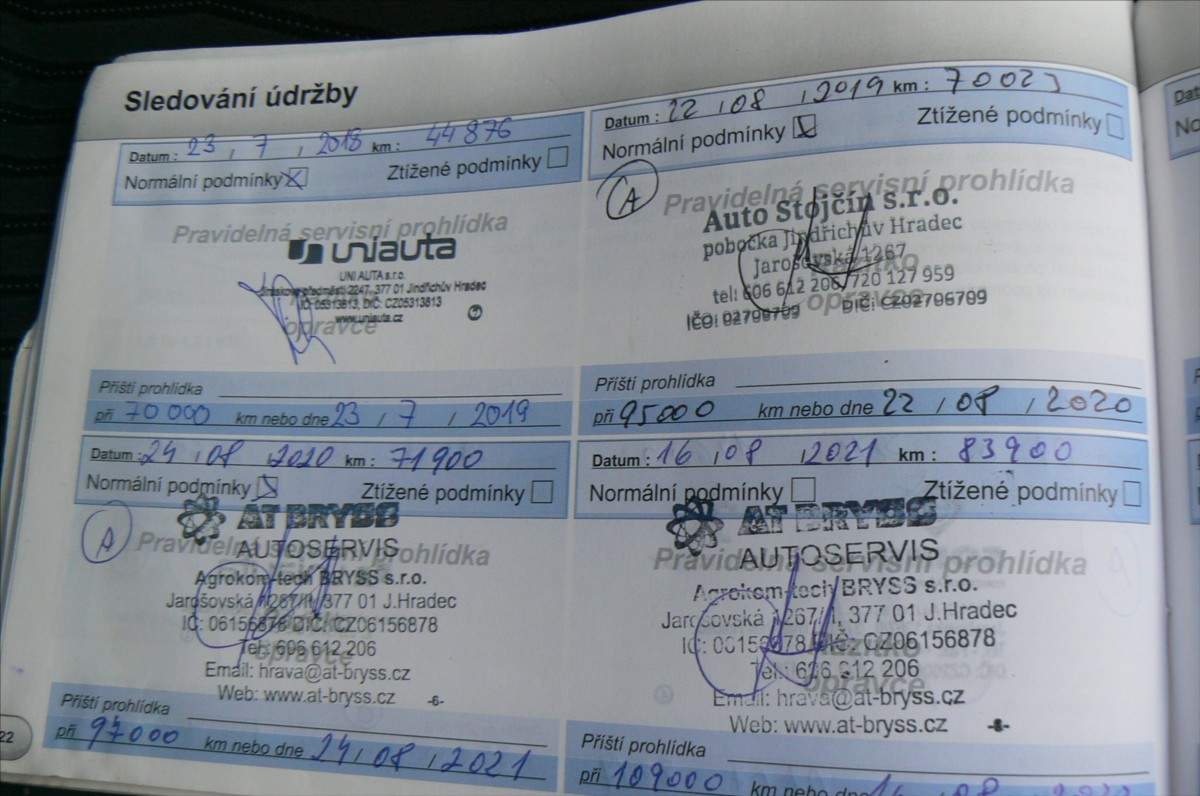 Sledování údržby
Datum : 23 , 7 , 2018 km : 44 876
Normální podmínky Ztížené podmínky
Pravidelná servisní prohlídka
uniauta
UNI AUTA s.r.o.
předměstí 2247, 377 01 Jindřichův Hradec
IČ: 05313813, DIČ: CZ05313813
www.uniauta.cz
opravce
Příští prohlídka
při 70 000 km nebo dne 23 , 7 , 2019
Datum : 22 , 08 , 2019 km : 70023
Normální podmínky Ztížené podmínky
A
Pravidelná servisní prohlídka
Auto Stojčín s.r.o.
pobočka Jindřichův Hradec
Jarošovská 1267
tel: 606 612 206/720 127 959
opravce
IČO: 02796709 DIČ: CZ02796709
Příští prohlídka
při 95000 km nebo dne 22 , 08 , 2020
Datum : 24 , 08 , 2020 km : 71900
Normální podmínky Ztížené podmínky
A
AT BRYSS
Pravidelná servisní prohlídka
AUTOSERVIS
Agrokom-tech BRYSS s.r.o.
Jarošovská 1267/II, 377 01 J.Hradec
IČ: 06156878 DIČ: CZ06156878
Tel: 606 612 206
opravce
Email: hrava@at-bryss.cz
Web: www.at-bryss.cz -6-
Příští prohlídka
při 97000 km nebo dne 24 , 08 , 2021
Datum : 16 , 08 , 2021 km : 83900
Normální podmínky Ztížené podmínky
AT BRYSS
AUTOSERVIS
Pravidelná servisní prohlídka
Agrokom-tech BRYSS s.r.o.
Jarošovská 1267/II, 377 01 J.Hradec
IČ: 06156878 DIČ: CZ06156878
Tel: 606 612 206
opravce
Email: hrava@at-bryss.cz
Web: www.at-bryss.cz
Příští prohlídka
při 109000 km nebo dne 08
22